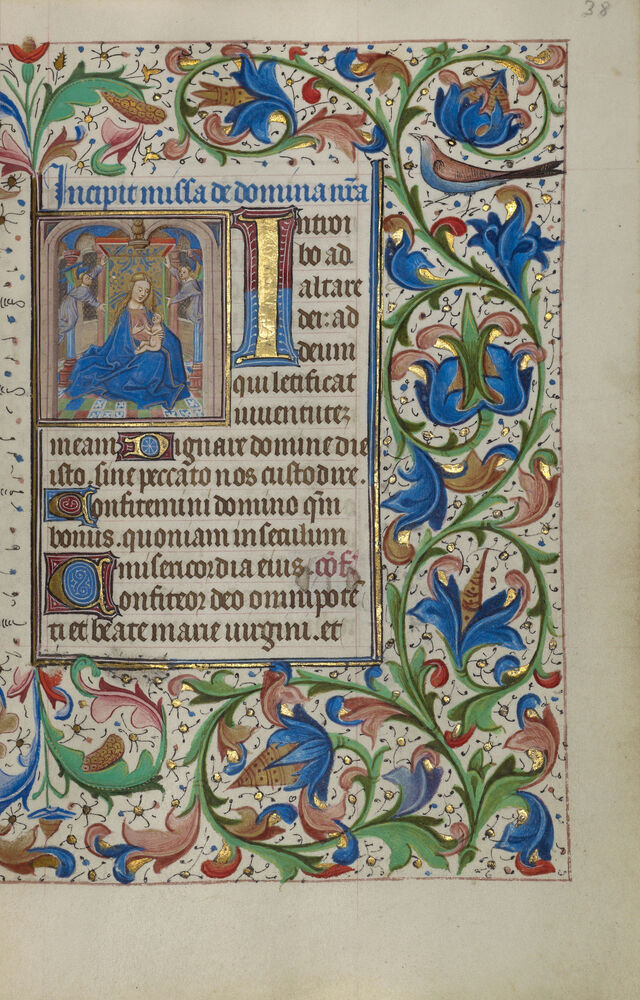 38
Incipit missa de domina nr̄a
Introi
bo ad
altare
dei: ad
deum
qui letificat
iuuentutez
meam Dignare domine die
isto, sine peccato nos custodire.
Confitemini domino qm̄
bonus. quoniam in seculum
misericordia eius. cōf.
Confiteor deo omnipotē
ti et beate marie uirgini. et